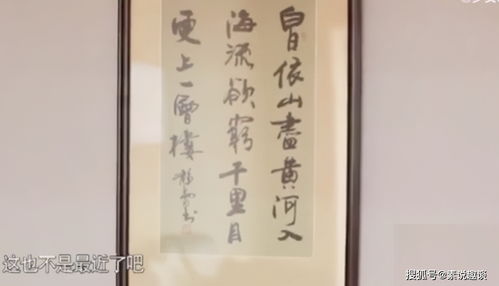 白日依山盡黄河入
海流欲窮千里目
更上一層樓
这也不是最近了吧
搜狐号@
说趣谈